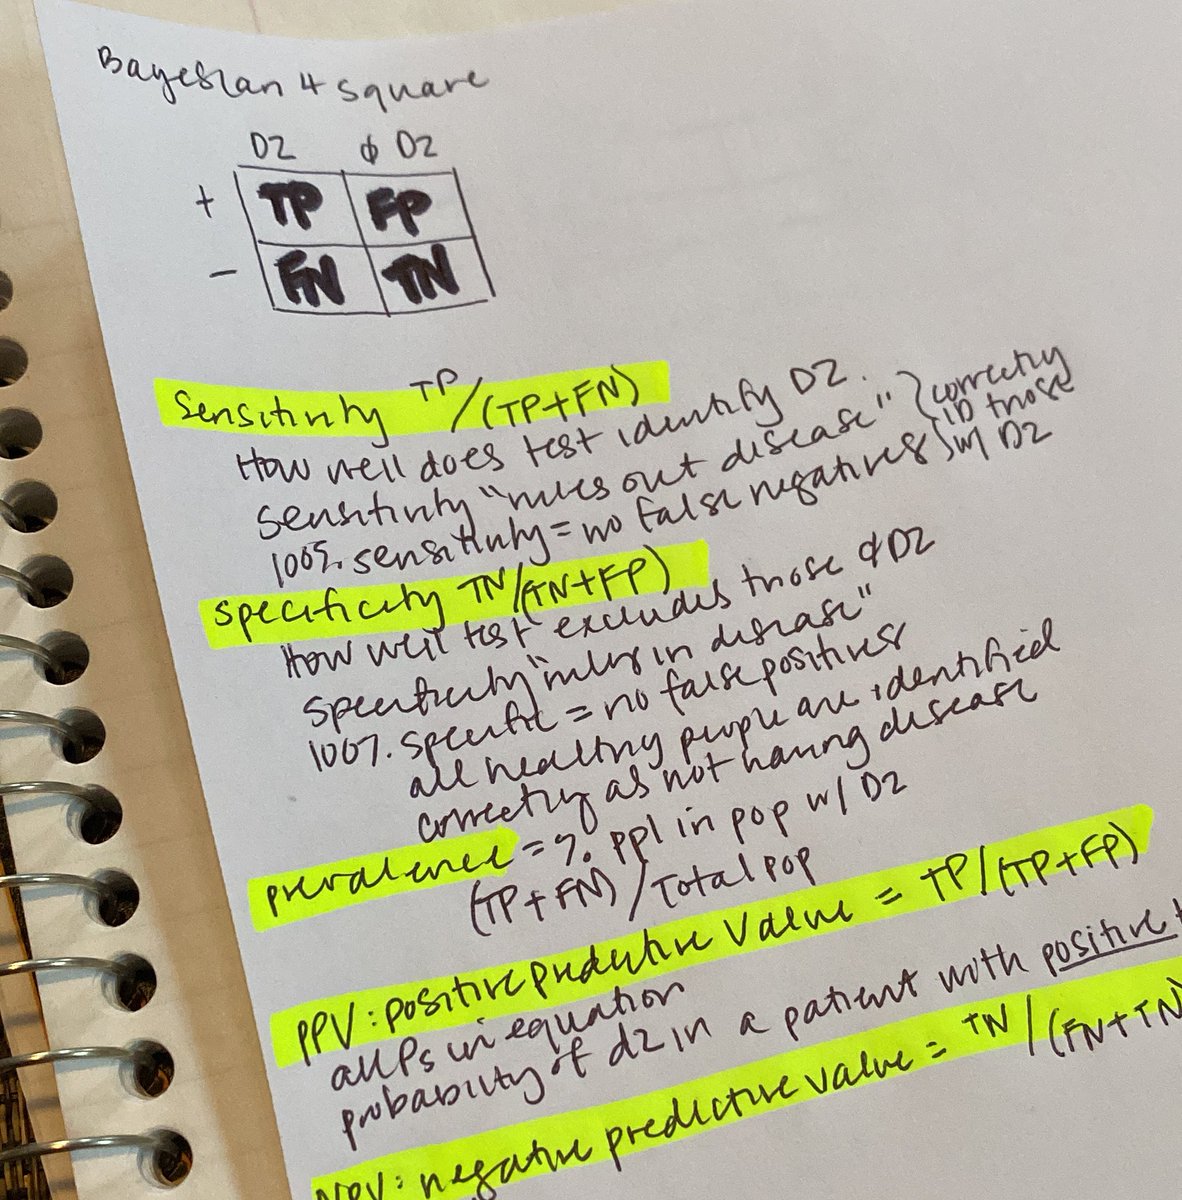 Bayesian 4 square
DZ ϕ DZ
+ TP FP
- FN TN
Sensitivity TP/(TP+FN)
How well does test identify DZ.
sensitivity "rules out disease" } correctly
100% sensitivity = no false negatives } ID those
w/ DZ
Specificity TN/(TN+FP)
How well test excludes those ϕ DZ
specificity "rules in disease"
100% specific = no false positives
all healthy people are identified
correctly as not having disease
prevalence = % ppl in pop w/ DZ
(TP+FN)/Total pop
PPV: positive predictive value = TP/(TP+FP)
all Ps in equation
probability of dz in a patient with positive
NPV: negative predictive value = TN/(FN+TN)